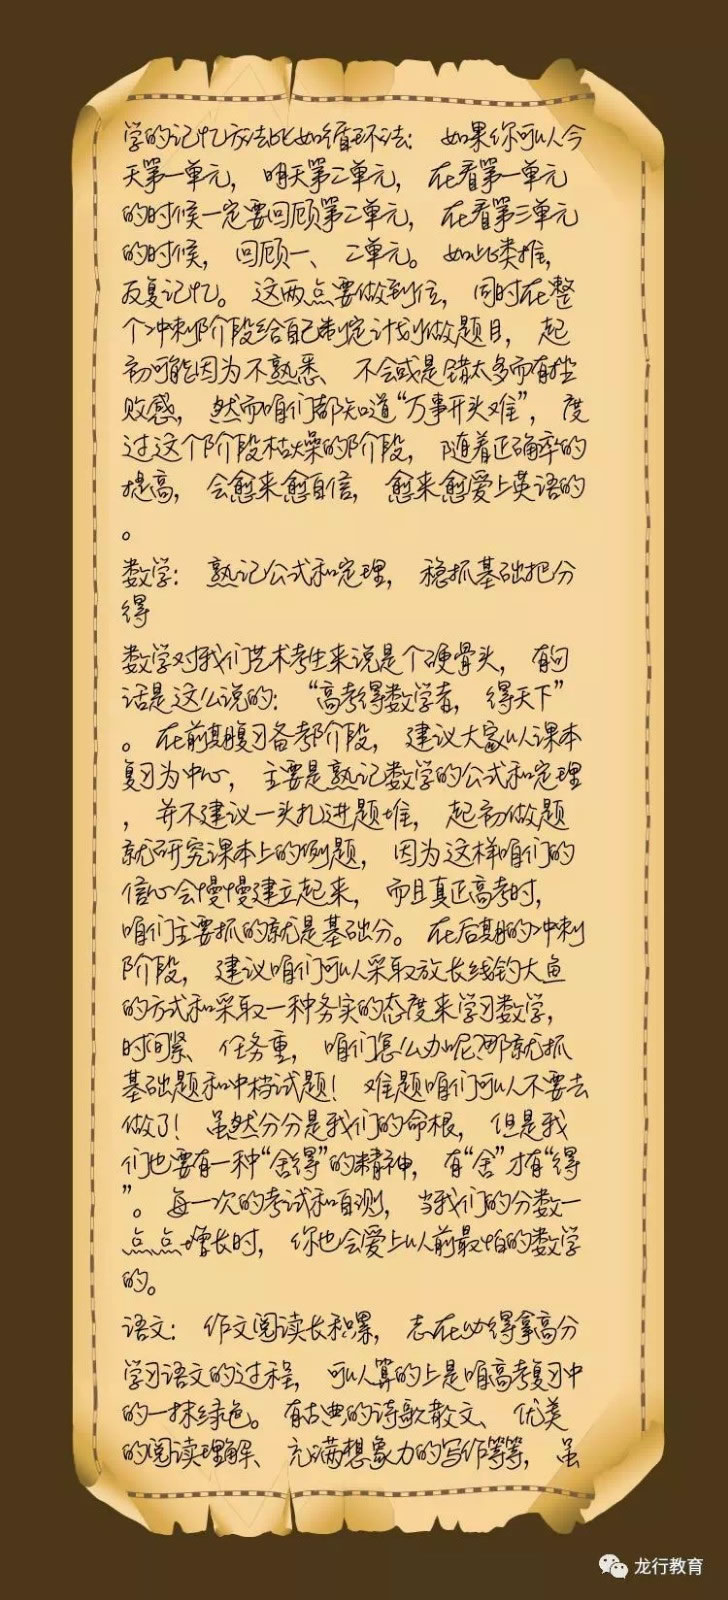 学的记忆方法比如循环法： 如果你可以今
天第一单元， 明天第二单元， 在看第一单元
的时候一定要回顾第二单元， 在看第三单元
的时候， 回顾一、 二单元。 如此类推，
反复记忆。 这两点要做到位， 同时在整
个冲刺阶段给自己制定计划做题目， 起
初可能因为不熟悉、 不会或是错太多而有挫
败感， 然而咱们都知道“万事开头难”， 度
过这个阶段枯燥的阶段， 随着正确率的
提高， 会愈来愈自信， 愈来愈爱上英语的
。
数学： 熟记公式和定理， 稳抓基础把分
得
数学对我们艺术考生来说是个硬骨头， 有句
话是这么说的： “高考得数学者， 得天下”
。 在前期复习备考阶段， 建议大家以课本
复习为中心， 主要是熟记数学的公式和定理
， 并不建议一头扎进题堆， 起初做题
就研究课本上的例题， 因为这样咱们的
信心会慢慢建立起来， 而且真正高考时，
咱们主要抓的就是基础分。 在后期的冲刺
阶段， 建议咱们可以采取放长线钓大鱼
的方式和采取一种务实的态度来学习数学，
时间紧、 任务重， 咱们怎么办呢?那就抓
基础题和中档试题！ 难题咱们可以不要去
做了！ 虽然分分是我们的命根， 但是我
们也要有一种“舍得”的精神， 有“舍”才有“得
”。 每一次的考试和自测， 当我们的分数一
点点增长时， 你也会爱上以前最怕的数学
的。
语文： 作文阅读长积累， 志在必得拿高分
学习语文的过程， 可以算的上是咱高考复习中
的一抹绿色。 有古典的诗歌散文、 优美
的阅读理解、 充满想象力的写作等等， 虽
龙行教育